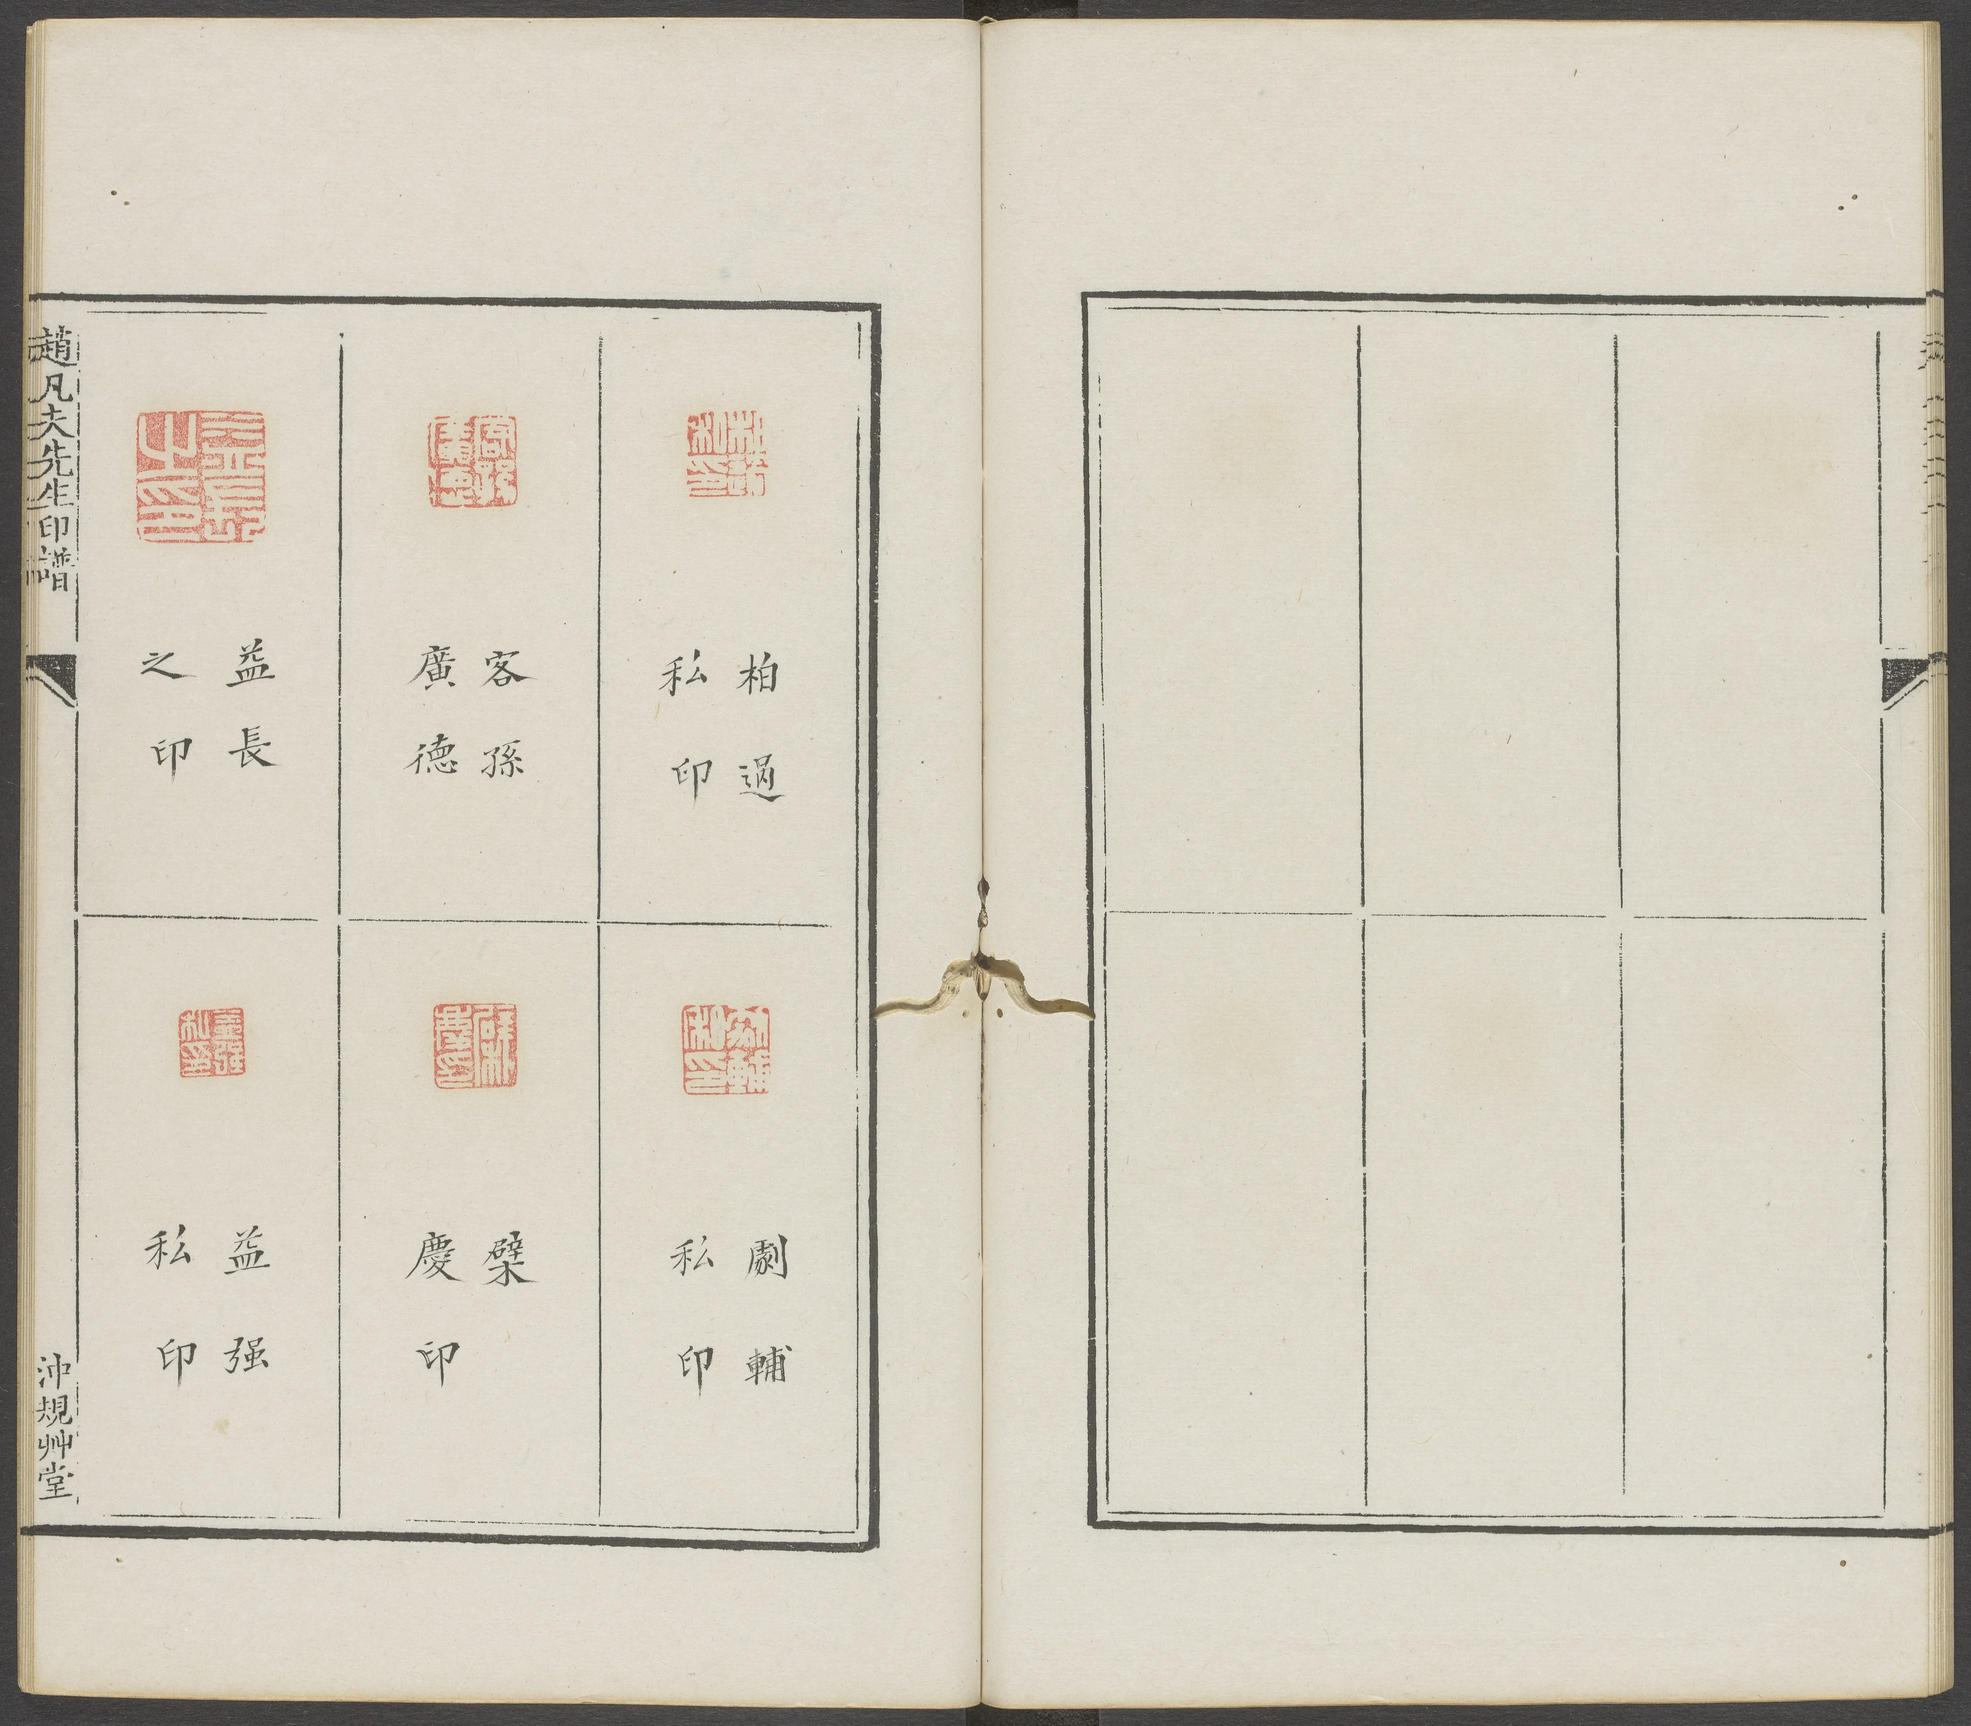 柏過
私印
客孫
廣德
益長
之印
劇輔
私印
檗
慶印
益强
私印
趙凡夫先生印譜
沖規艸堂